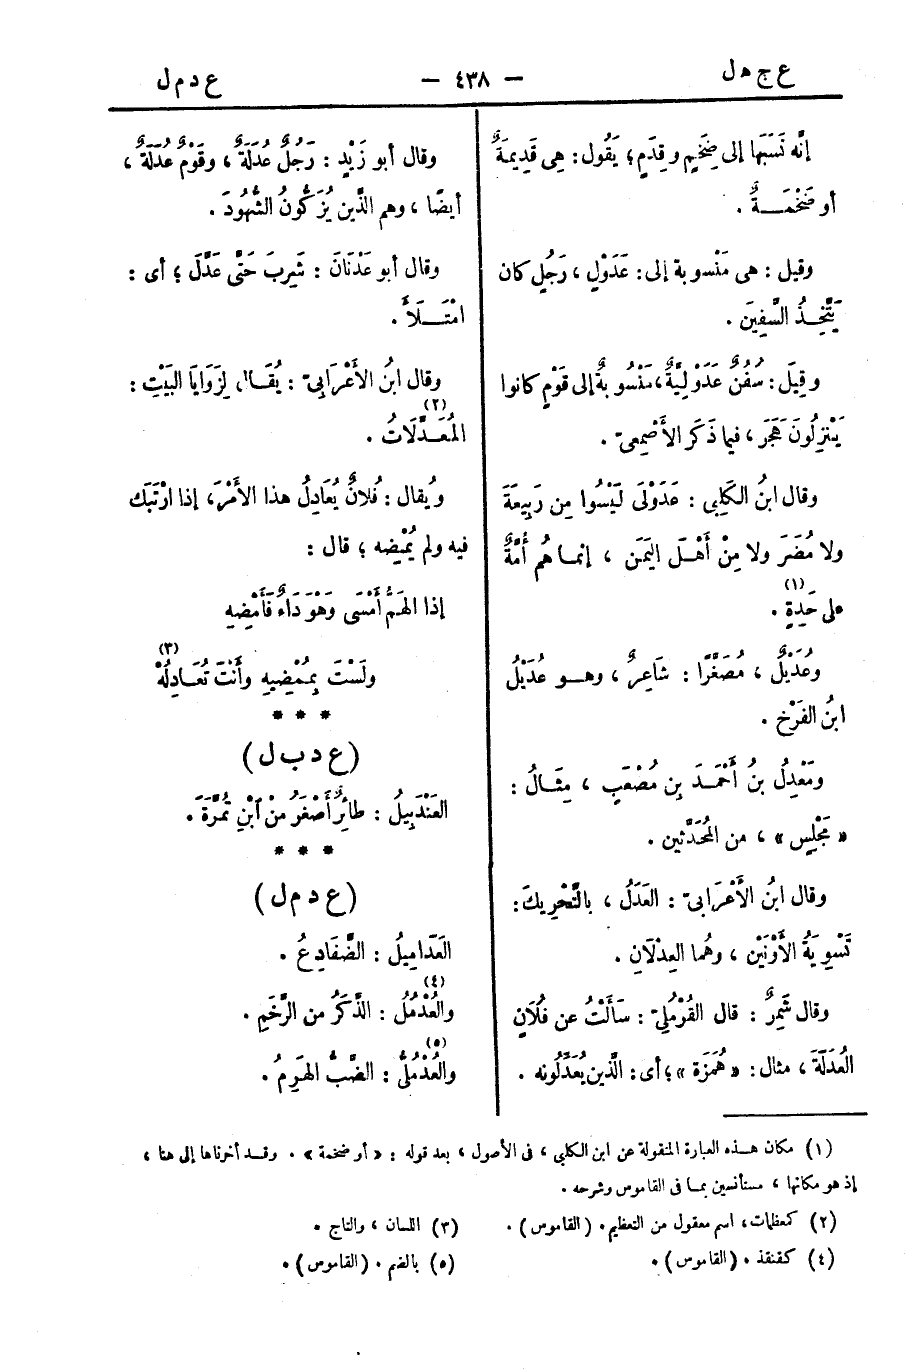 ع ج ه ل — ٤٣٨ — ع د م ل
إنَّه نَسَبَها إلى ضِخَمٍ وقِدَمٍ؛ يَقُول: هِى قَدِيمَةٌ
أو ضَخْمَـةٌ.
وقيل: هى مَنْسوبة إلى: عَدَوْلٍ، رَجُلٍ كان
يَتَّخِذُ السَّفِينَ.
وقِيلَ: سُفُنٌ عَدَوْلِيَّةٌ، مَنْسُوبةٌ إلى قَوْمٍ كانوا
يَنْزِلُونَ هَجَرَ، فيما ذَكَر الأَصْمعىّ.
وقال ابنُ الكَلِبى: عَدَوْلَى لَيْسُوا مِن رَبِيعَةَ
ولا مُضَرَ ولا مِنْ أَهْـلِ اليَمَن، إنمـا هُم أُمَّةٌ
على حَدِةٍ.(١)
وعُدَيْلٌ، مُصَغَّرًا: شَاعِرٌ، وهـو عُدَيْلُ
ابنُ الفَرْخِ.
ومَعْدِلُ بنُ أَحْمَـدَ بِن مُصْعَبٍ، مِثـالُ:
« مَجْلِس »، من المُحَدِّثين.
وقال ابنُ الأَعْرابىّ: العَدَلُ، بالتَّحْرِيكَ:
تَسْوِيَةُ الأَوْنَيْن، وهُما العِدْلَانِ.
وقال شَمِرٌ: قال القُرْمُلِىّ: سَأَلْتُ عن فُلَانٍ
العُدَلَةَ، مثال: « هُمَزَة »؛ أى: الَّذين يُعَدِّلُونه.
وقال أبو زَيْدٍ: رَجُلٌ عُدَلَةٌ، وقَوْمٌ عُدَلَةٌ،
أيضًا، وهم الذَّين يُزَكُّونُ الشُّهُودَ.
وقال أبو عَدْنَانَ: شَرِبَ حَتَّى عَدَّلَ؛ أى:
امْتَـلَأَ.
وقال ابنُ الأَعْرَابىّ: يُقَـال، لِزَوَايَا البَيْتِ:
المُعَـدَّلَاتُ.(٢)
ويُقال: فُلانٌ يُعَادِلُ هذا الأَمْرَ، إذا ارْتَبَك
فيه ولم يُمْضِه؛ قال:
إذا الهَمُّ أَمْسَى وَهْوَ دَاءٌ فَأَمْضِهِ
ولَسْتَ بِمُمْضِيهِ وأَنْتَ تُعَـادِلُهْ(٣)
* * *
(ع د ب ل)
العَنْدَبِيلُ: طائِرٌ أَصْغَرُ مِنْ ابْنِ تُمَّرَةَ.
* * *
(ع د م ل)
العَدَامِيلُ: الضَّفَادِعُ.
والعُدْمُلُ: الذَّكَرُ من الرَّخَمِ.(٤)
والعُدْمُلُىُّ: الضَّبُّ الهَرِمُ.(٥)
(١) مكان هـذه العبارة المنقولة عن ابن الكلبى، فى الأصول، بعد قوله: « أو ضخمة ». وقـد أخرناها إلى هنا،
إذ هو مكانها، مستأنسين بمـا فى القاموس وشرحه.
(٢) كمعظمات، اسم معقول من التعظيم. (القاموس). (٣) اللسان، والتاج.
(٤) كقنفذ. (القاموس). (٥) بالضم. (القاموس).